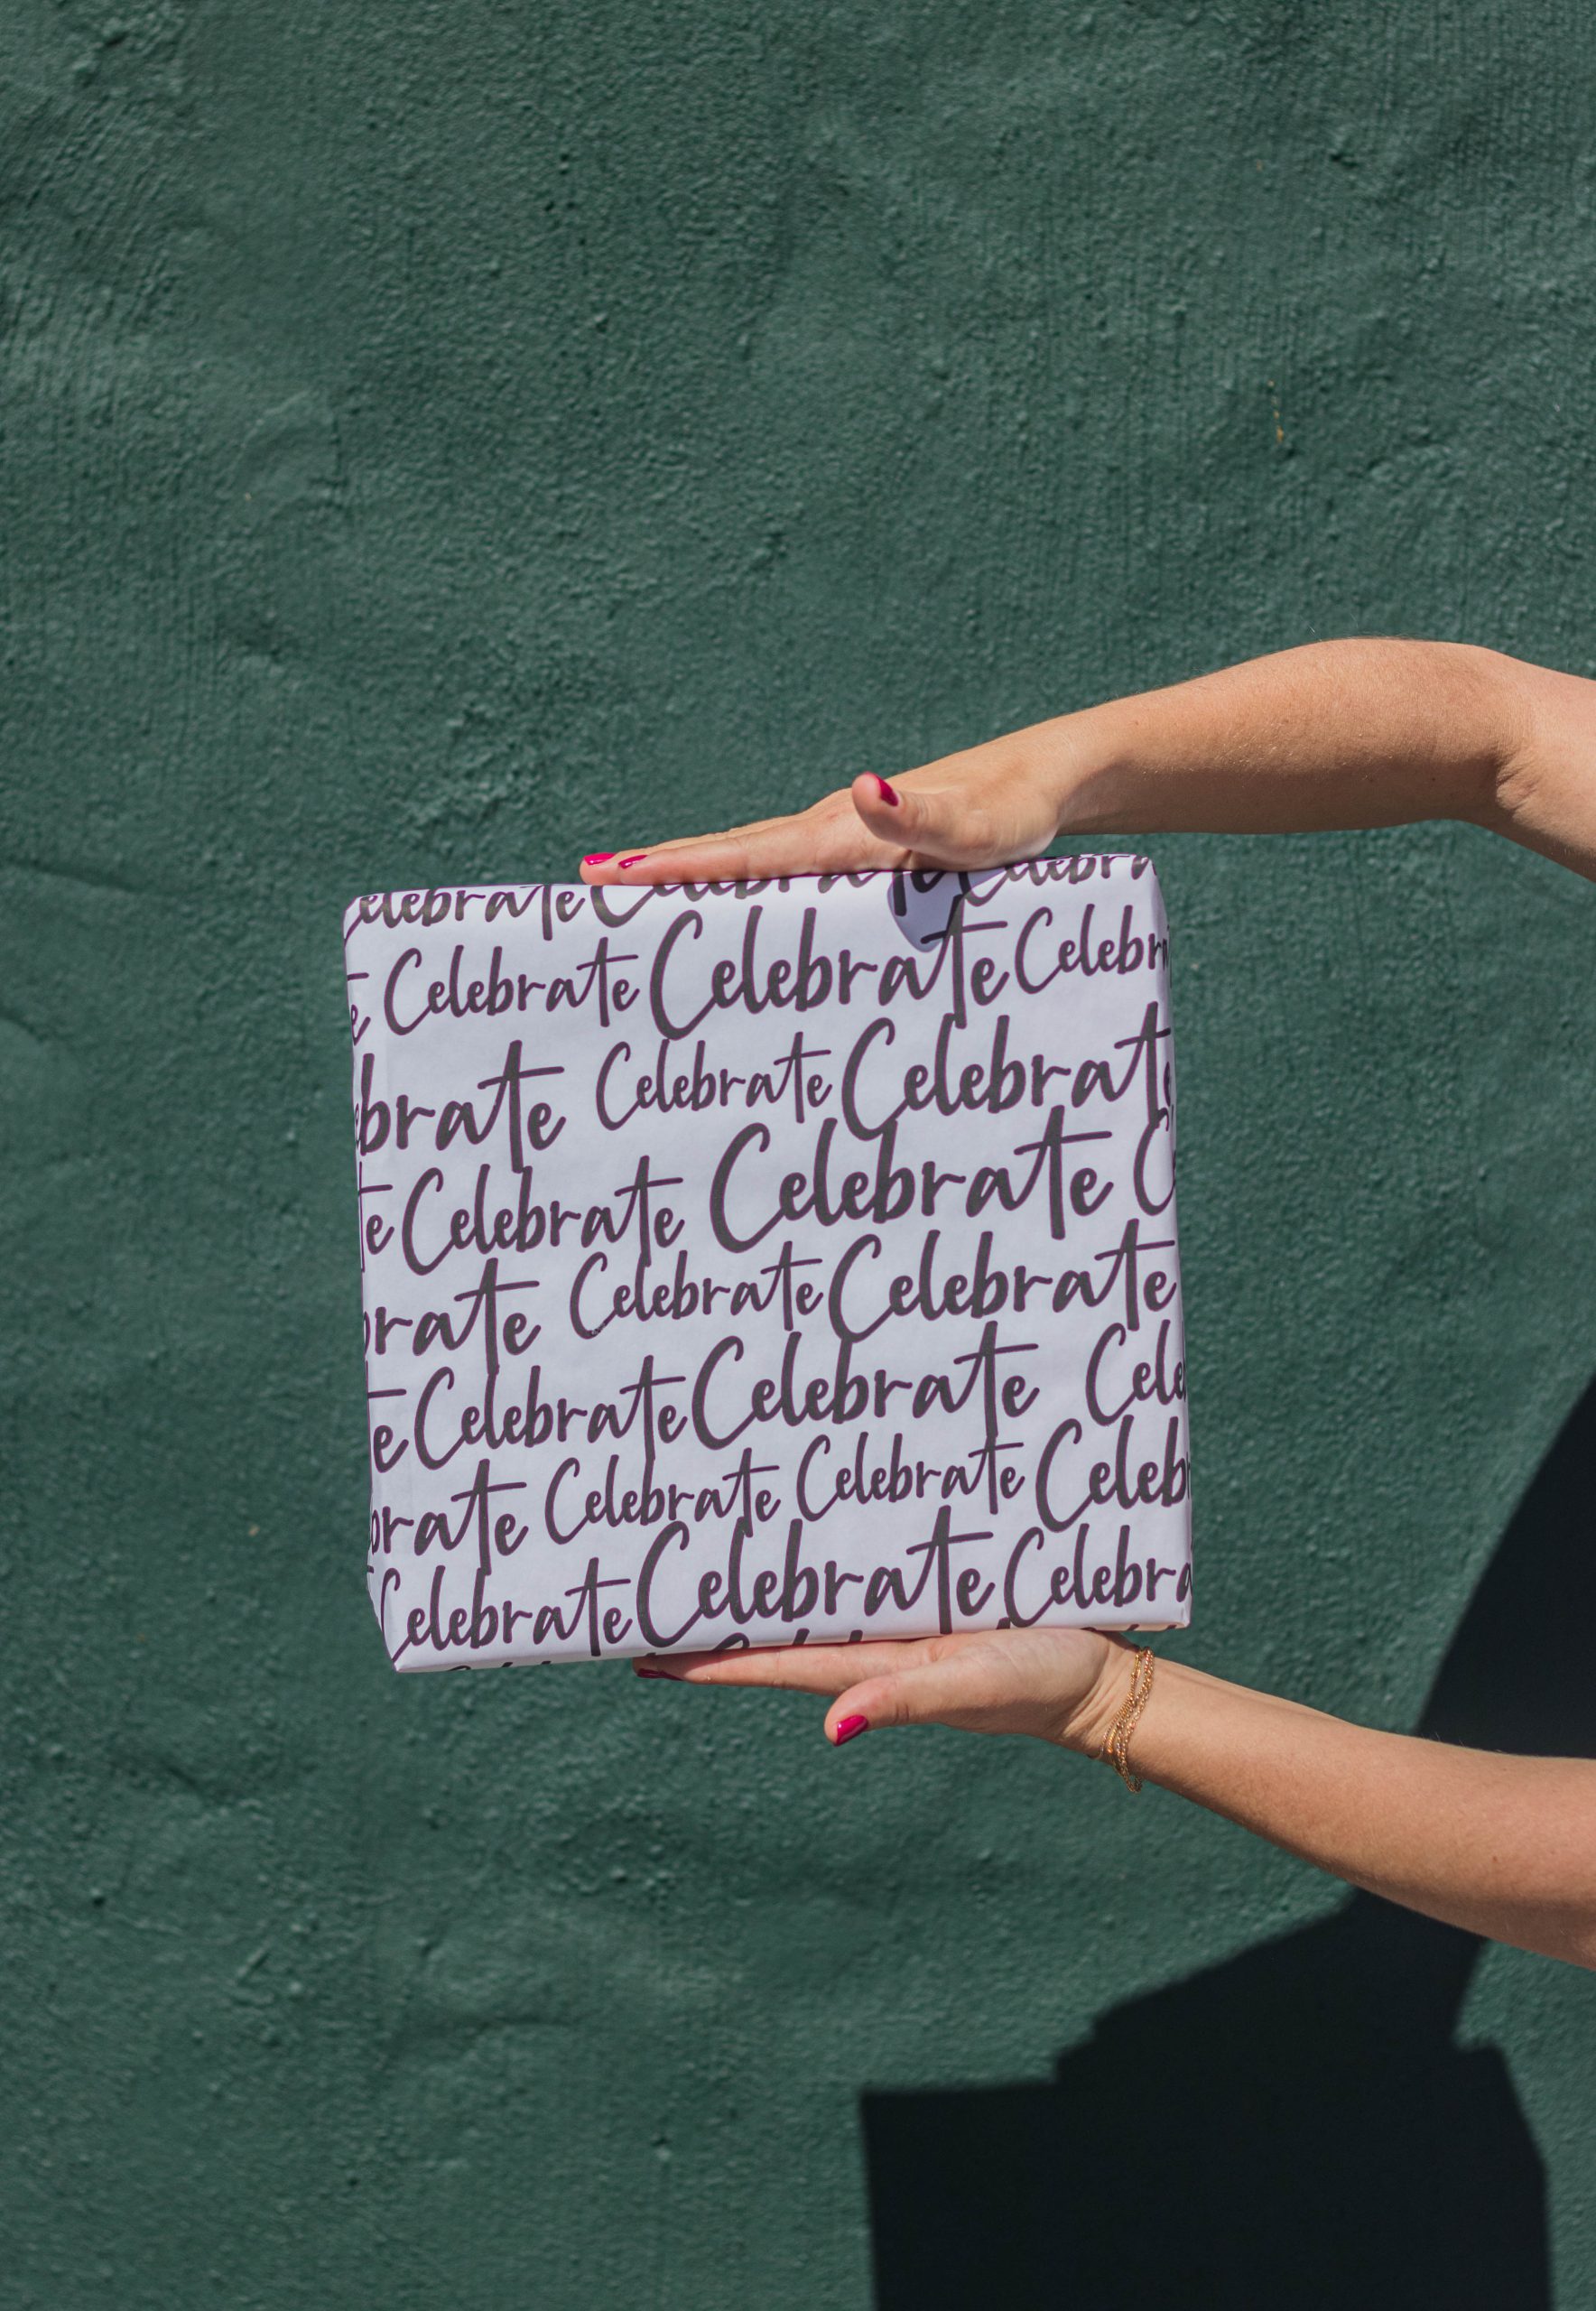 elebrate Celebrate Celebra
e Celebrate Celebrate Celebr
brate Celebrate Celebrate
te Celebrate Celebrate C
brate Celebrate Celebrate
e Celebrate Celebrate Cele
brate Celebrate Celebrate Celeb
Celebrate Celebrate Celebra